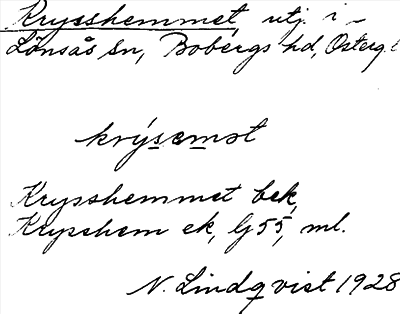 Krysshemmet, utj. i
Lönsås sn, Bobergs hd, Österg.l
krýsemət
Krysshemmet bek,
Krysshem ek, G55, ml.
N. Lindqvist 1928